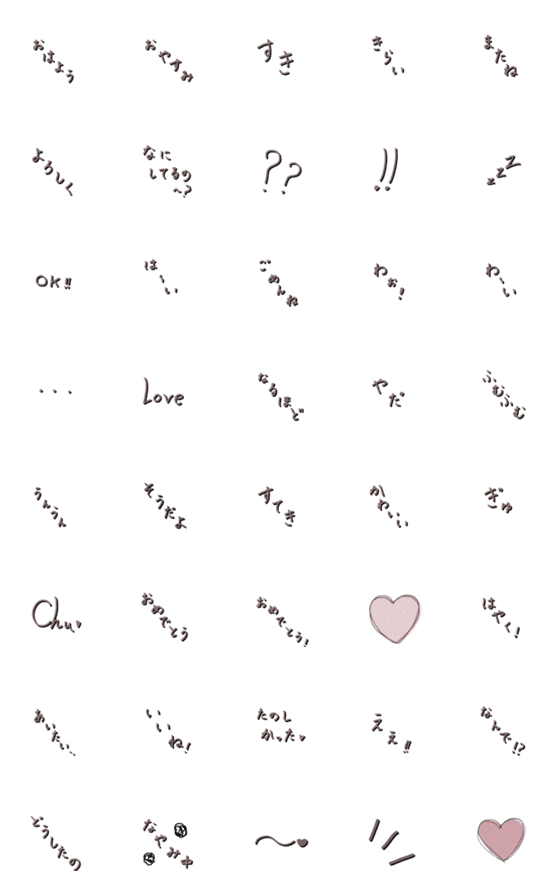 おはよう
おやすみ
すき
きらい
またね
よろしく
なに
してるの
〜?
??
!!
zzz
OK!!
はーい
ごめんね
わぉ!
わーい
...
Love
なるほど
やだ
ふむふむ
うんうん
そうだよ
すてき
かわいい
ぎゅ
Chu♥
おめでとう
おめでとう!
はやく!
あいたい...
いいね!
たのし
かった♥
ええ!!
なんで!?
どうしたの
なやみ中